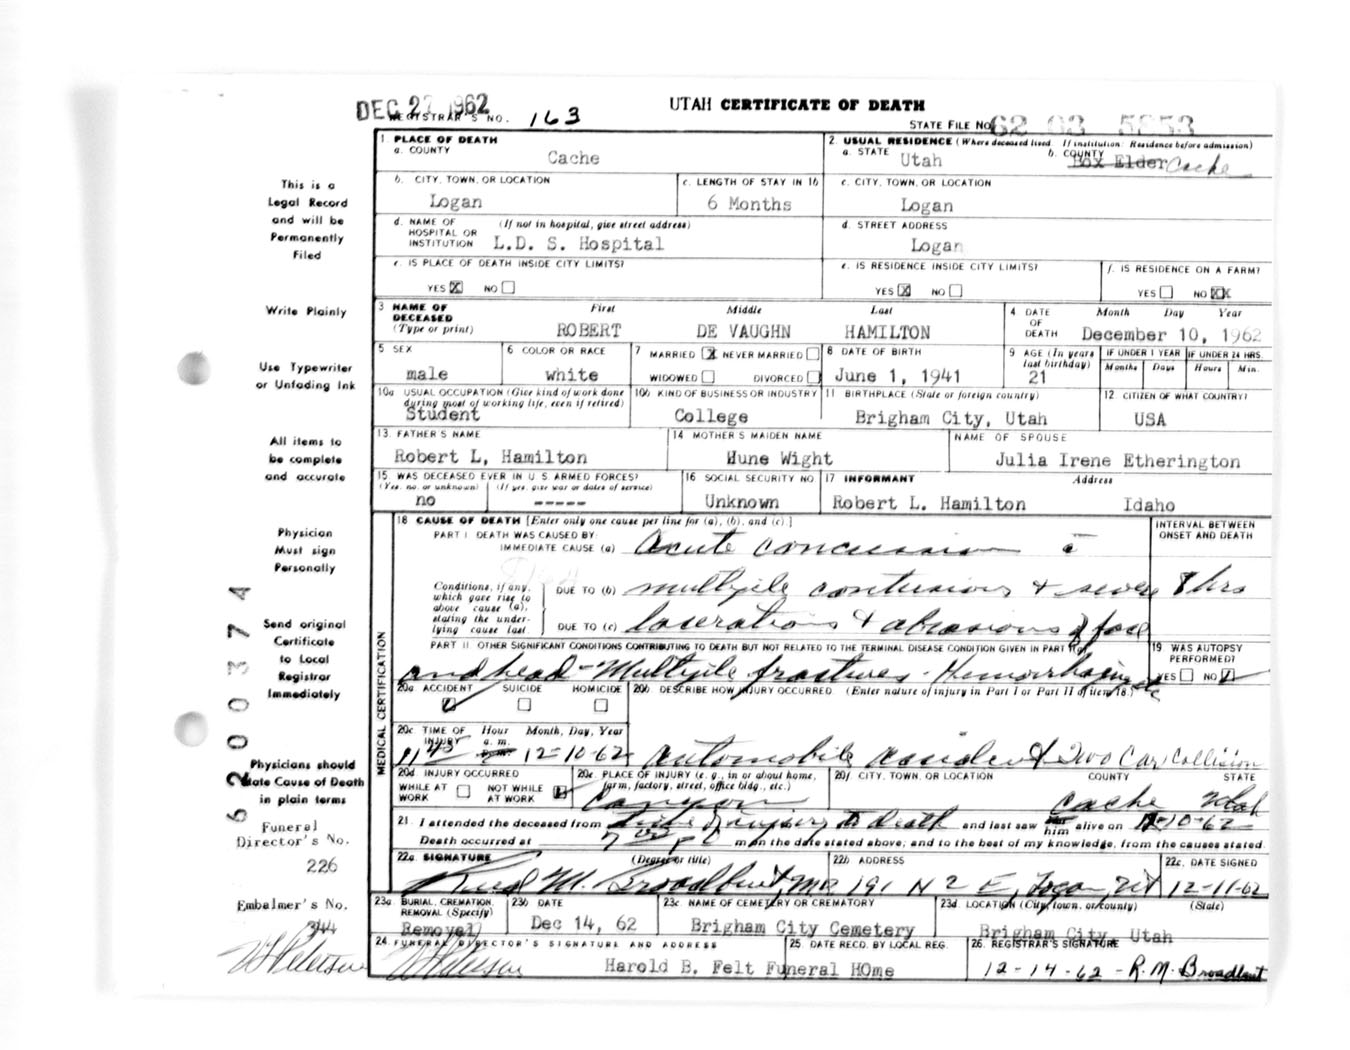 DEC 27 1962
UTAH CERTIFICATE OF DEATH
REGISTRAR'S NO. 163
STATE FILE NO. 62 03 5853
This is a
Legal Record
and will be
Permanently
Filed
Write Plainly
Use Typewriter
or Unfading Ink
All items to
be complete
and accurate
Physician
Must sign
Personally
Send original
Certificate
to Local
Registrar
Immediately
Physicians should
state Cause of Death
in plain terms
Funeral
Director's No.
226
Embalmer's No.
344
1. PLACE OF DEATH
a. COUNTY
Cache
2. USUAL RESIDENCE (Where deceased lived. If institution: Residence before admission)
a. STATE Utah b. COUNTY Box Elder Cache
b. CITY, TOWN, OR LOCATION
Logan
c. LENGTH OF STAY IN 1b
6 Months
c. CITY, TOWN, OR LOCATION
Logan
d. NAME OF HOSPITAL OR INSTITUTION (If not in hospital, give street address)
L.D. S. Hospital
d. STREET ADDRESS
Logan
e. IS PLACE OF DEATH INSIDE CITY LIMITS?
YES X NO
e. IS RESIDENCE INSIDE CITY LIMITS?
YES X NO
f. IS RESIDENCE ON A FARM?
YES NO XX
3 NAME OF DECEASED (Type or print)
First Middle Last
ROBERT DE VAUGHN HAMILTON
4 DATE OF DEATH Month Day Year
December 10, 1962
5 SEX
male
6 COLOR OR RACE
white
7 MARRIED X NEVER MARRIED
WIDOWED DIVORCED
8 DATE OF BIRTH
June 1, 1941
9 AGE (In years last birthday)
21
IF UNDER 1 YEAR IF UNDER 24 HRS.
Months Days Hours Min.
10a USUAL OCCUPATION (Give kind of work done during most of working life, even if retired)
Student
10b KIND OF BUSINESS OR INDUSTRY
College
11 BIRTHPLACE (State or foreign country)
Brigham City, Utah
12 CITIZEN OF WHAT COUNTRY?
USA
13. FATHER'S NAME
Robert L, Hamilton
14 MOTHER S MAIDEN NAME
Hune Wight
NAME OF SPOUSE
Julia Irene Etherington
15 WAS DECEASED EVER IN U S ARMED FORCES?
(Yes, no, or unknown) (If yes, give war or dates of service)
no -----
16 SOCIAL SECURITY NO
Unknown
17 INFORMANT Address
Robert L. Hamilton Idaho
18 CAUSE OF DEATH [Enter only one cause per line for (a), (b), and (c).]
PART I. DEATH WAS CAUSED BY:
IMMEDIATE CAUSE (a) Acute concussion c̄
Conditions, if any, which gave rise to above cause (a), stating the underlying cause last.
DUE TO (b) multiple contusions & severe
DUE TO (c) lacerations & abrasions of face
INTERVAL BETWEEN ONSET AND DEATH
8 hrs
PART II OTHER SIGNIFICANT CONDITIONS CONTRIBUTING TO DEATH BUT NOT RELATED TO THE TERMINAL DISEASE CONDITION GIVEN IN PART I(a)
and head - Multiple fractures -
19 WAS AUTOPSY PERFORMED?
YES NO
20a ACCIDENT SUICIDE HOMICIDE
20b DESCRIBE HOW INJURY OCCURRED (Enter nature of injury in Part I or Part II of item 18.)
20c TIME OF INJURY Hour a. m. Month, Day, Year
12-10-62
automobile accident Two Car Collision
20d INJURY OCCURRED
WHILE AT WORK NOT WHILE AT WORK
20e. PLACE OF INJURY (e. g., in or about home, farm, factory, street, office bldg., etc.)
Canyon
20f. CITY, TOWN, OR LOCATION COUNTY STATE
Cache Utah
21. I attended the deceased from time of injury to death and last saw him alive on 12-10-62
Death occurred at m on the date stated above; and to the best of my knowledge, from the causes stated.
22a. SIGNATURE (Degree or title)
M. Broadbent, MD
22b ADDRESS
191 N 2 E, Logan, Ut
22c. DATE SIGNED
12-11-62
23a. BURIAL, CREMATION, REMOVAL (Specify)
Removal
23b DATE
Dec 14, 62
23c NAME OF CEMETERY OR CREMATORY
Brigham City Cemetery
23d. LOCATION (City, town, or county) (State)
Brigham City, Utah
24. FUNERAL DIRECTOR'S SIGNATURE AND ADDRESS
Harold B. Felt Funeral HOme
25. DATE RECD. BY LOCAL REG.
26. REGISTRAR'S SIGNATURE
12-14-62 - R.M. Broadbent
62 00374